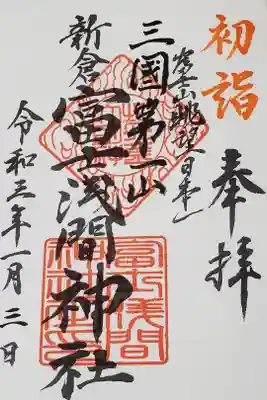 初詣
奉拝
富士山眺望日本一
三國第一山
新倉富士浅間神社
令和三年一月三日